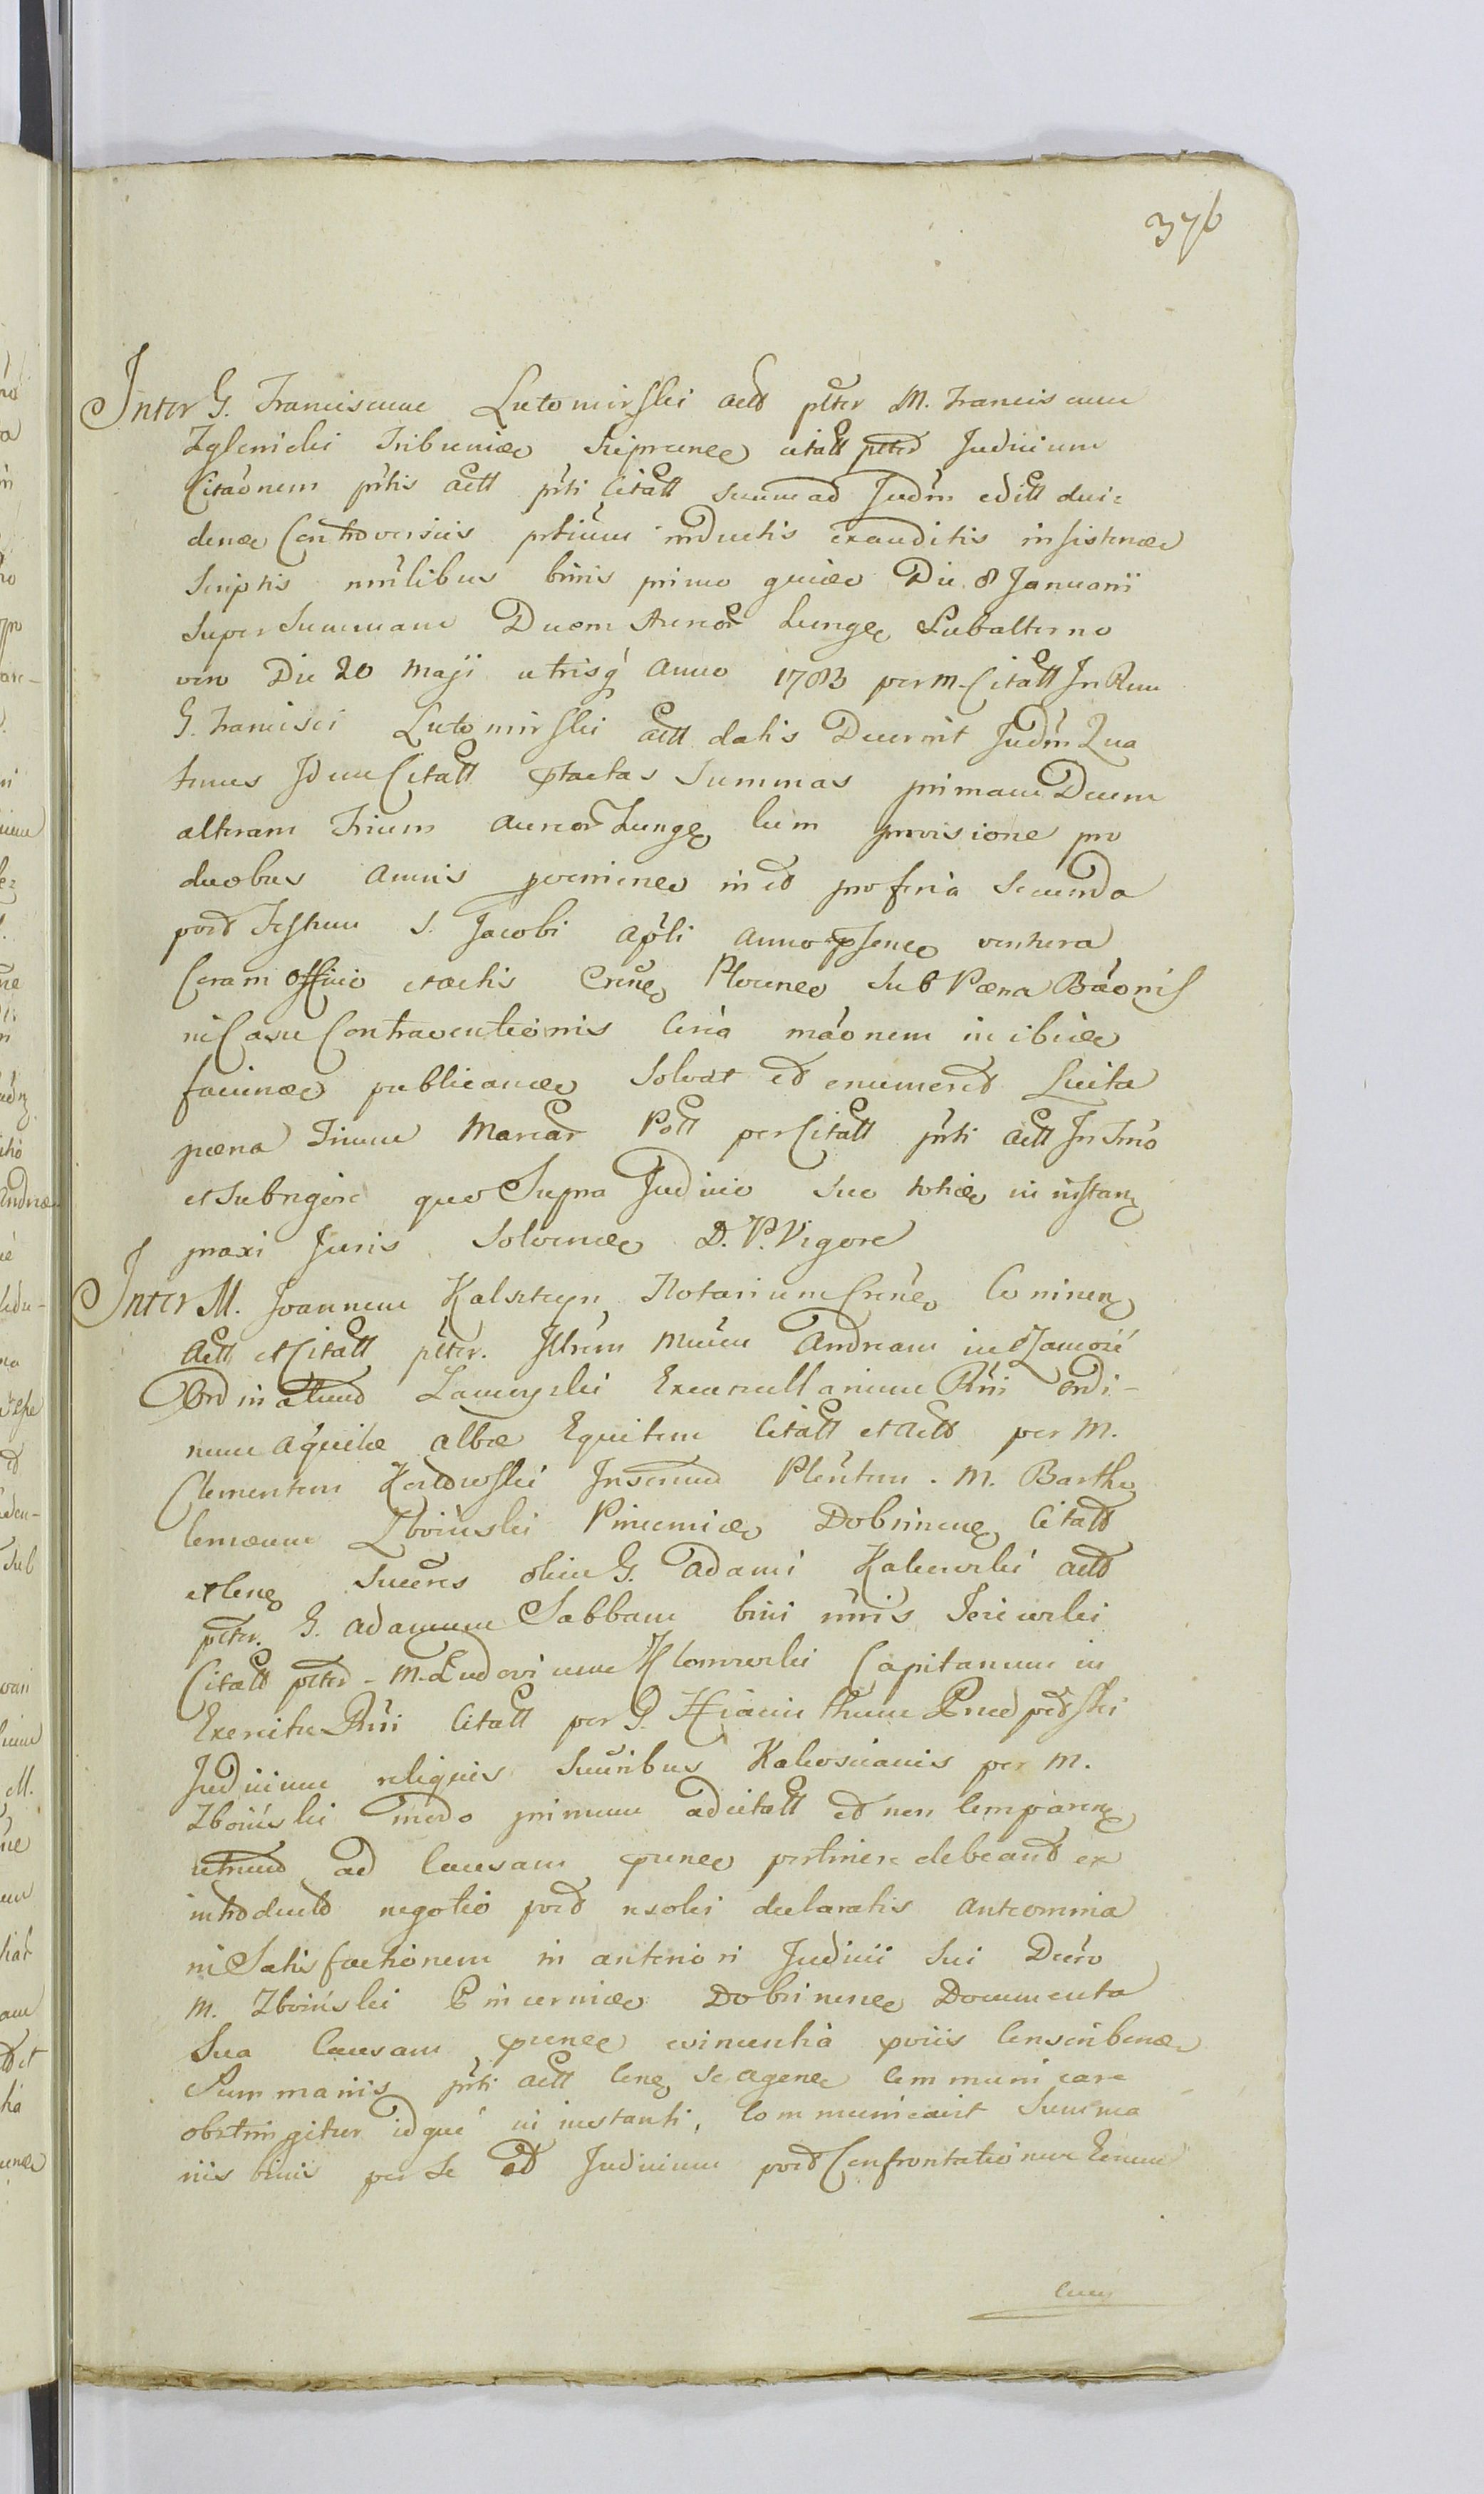 376
Inter G. Franciscum Lutomirski act plter M. Franciscum
Zglenicki Tribunice Sieprcence citatt pltred Judicium
Citaõnem prtis actt prti Citatt suum ad Judm editt duci
denoe Controversiis prtium inductis exauditis insistendo
Scriptis mnlibus binis primo quidem Die 8 Januarii
Super Summam Duom Aureor hunge Subalterno
vero Die 20 Maji utrisq Anno 1783 per M. Citatt In Rem
G. Francisci Lutomirski actt datis Decernit Judm Qua
tenus Idem Citatt ptactas Summas primam Duom
alteram Trium aureor hunge cum provisione pro
duobus annis proveniene in et pro feria Secunda
post Festum S. Jacobi Apli anno psene ventura
Coram Officio et actis Crene Plocene Sub Poena Baõnis
in Casu Contraventionis circa maõnem in ibidem
faciendo publicando Solvat et enumeret Luita
poena Trium Marcar Poll per Citatt prti actt In Tmo
et Subrigore quo Supra Judicio suo toties in instan
praxi Juris Solvendo D. P. Vigore
Inter M. Joannem Kalszteyn Notarium Crene Cominen
Actt et Citatt plter. Illrem Mnum Andream in Zamość
Ordinatum Zamoyski Excancellarium Rni ordi-
num aquilae albae Equitem Citatt et actt per M.
Clementem Insermd Plentem. M. Bartho
lomaeum Zboiński Pincernice Dobrinene Citatt
et Sucres olim G. Adami Kakowski actt
plter. G. Adamum Sabbam bini nnis Jeziewski
Citatt plter - M. Ludovicum Capitaneum in
Exercitu Rni Citatt per G. Hiacinthum
Judicium reliquis Sucribus Kakoscianis per M.
Zboiński modo primum adcitatt et non Comparen
utrum ad Causam prene pertinere debeant ex
introducto negotio post declaratis anteomnia
in Satisfactionem in anteriori Judicii Sui Decro
M. Zboiński Pincernice Dobrinene Documenta
Sua Causam prene evincentia priis Conscribendo
Summariis prti actt se agene Communicare
obstringitur idque in instanti, Communicavit Summa
riis binis per se et Judicium post Confrontationem Eorum
Cum